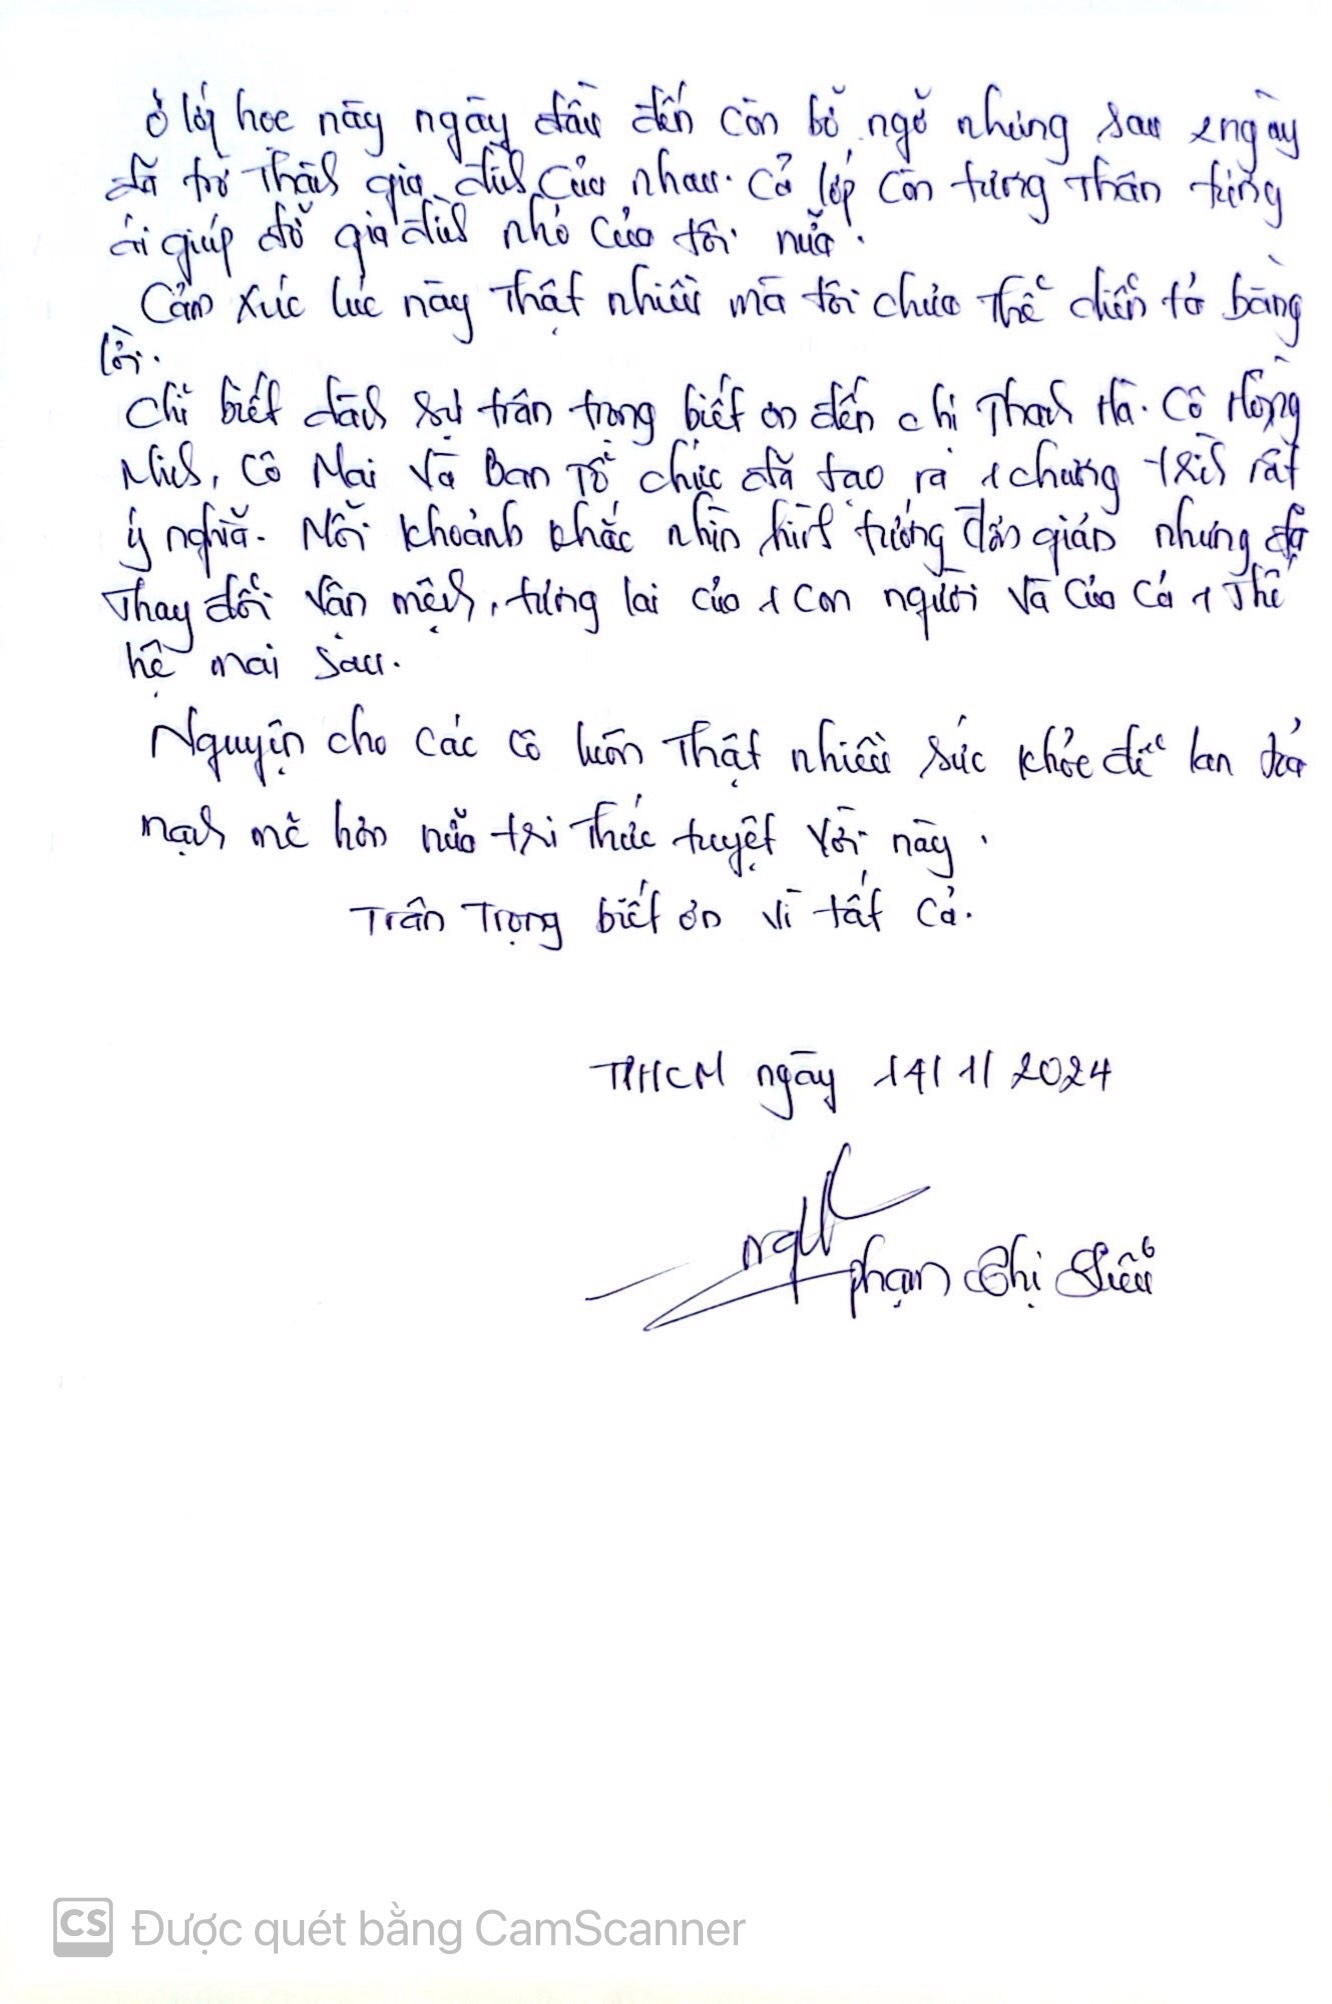 Ở lớp học này ngày đầu đến còn bỡ ngỡ nhưng sau 2 ngày
đã trở thành gia đình của nhau. Cả lớp còn tương thân tương
ái giúp đỡ gia đình nhỏ của tôi nữa.
Cảm xúc lúc này thật nhiều mà tôi chưa thể diễn tả bằng
lời.
Chỉ biết dành sự trân trọng biết ơn đến chị Thanh Hà. Cô Hồng
Minh, Cô Mai và Ban Tổ chức đã tạo ra 1 chương trình rất
ý nghĩa. Mỗi khoảnh khắc nhìn hình tưởng đơn giản nhưng đã
thay đổi vận mệnh, tương lai của 1 con người và của cả 1 thế
hệ mai sau.
Nguyện cho các cô luôn thật nhiều sức khỏe để lan tỏa
mạnh mẽ hơn nữa tri thức tuyệt vời này.
Trân Trọng biết ơn vì tất cả.
TPHCM ngày 14/1/2024
Phạn Thị
CS Được quét bằng CamScanner